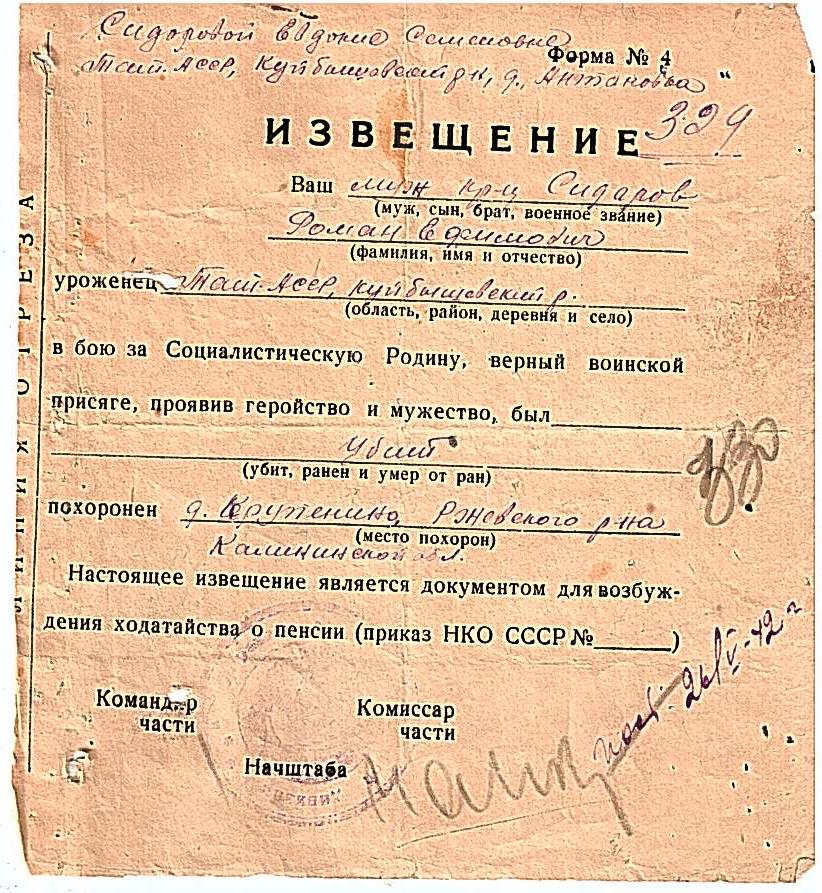 Сидоровой Евдокие Семеновне
Форма № 4
Тат.АССР, Куйбышевский р-н, д. Антановка
329
ИЗВЕЩЕНИЕ
Ваш муж кр-ц Сидаров
(муж, сын, брат, военное звание)
Роман Ефимович
(фамилия, имя и отчество)
уроженец Тат.АССР, Куйбышевский р.
(область, район, деревня и село)
в бою за Социалистическую Родину, верный воинской
присяге, проявив геройство и мужество, был
Убит
(убит, ранен и умер от ран)
330
похоронен д. Крутенино, Ржевского р-на
(место похорон)
Калининской обл.
Настоящее извещение является документом для возбуж-
дения ходатайства о пенсии (приказ НКО СССР № )
26/V-42 г
Командир
части
Комиссар
части
Начштаба
ЛИНИЯ ОТРЕЗА